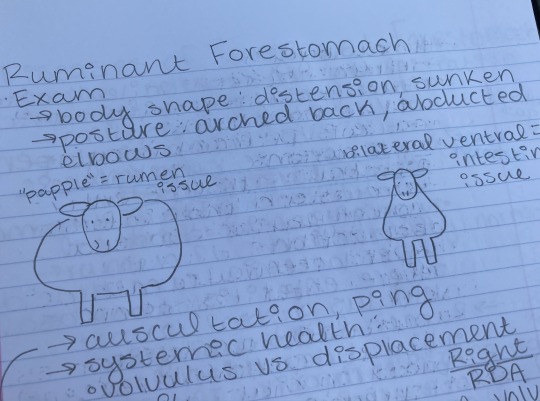 Ruminant Forestomach
Exam
→ body shape: distension, sunken
→ posture: arched back, abducted
elbows
"papple" = rumen
issue
bilateral ventral =
intestin
issue
→ auscultation, ping
→ systemic health
volvulus vs displacement
Right
RDA